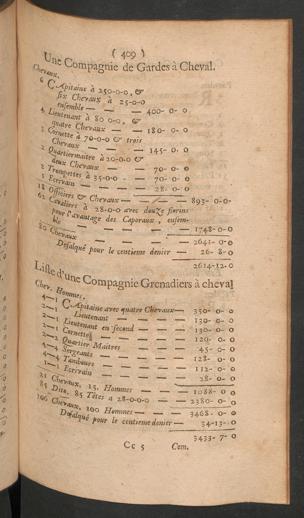 ( 409 )
Une Compagnie de Gardes à Cheval.
Chevaux.
6 CApitaine à 250-0-0, &
six Chevaux à 25-0-0
ensemble — — — 400- 0- 0
4 Lieutenant à 80 0-0, &
quatre Chevaux — — 180- 0- 0
3 Cornette à 70-0-0 & trois
Chevaux — — — 145- 0- 0
2 Quartiermaitre à 20-0-0 &
deux Chevaux — — 70- 0- 0
2 Trompettes à 35-0-0 — — 70- 0- 0
1 Ecrivain — — — 28- 0- 0
18 Officiers & Chevaux — — — 893- 0-0
62 Cavaliers à 28-0-0 avec douze florins
pour l'avantage des Caporaux, ensem-
ble — — — — 1748- 0-0
80 Chevaux — — — 2641- 0-0
Defalqué pour le centieme denier — 26- 8-0
2614-12- 0
Liste d'une Compagnie Grenadiers à cheval
Chev. Hommes.
4—1 CApitaine avec quatre Chevaux— 350- 0- 0
Lieutenant — — — 130- 0- 0
Lieutenant en second — — 130- 0- 0
Cornette — — — 120- 0- 0
Quartier Maitres — — 45- 0- 0
Sergeants — — — 128- 0- 0
Tambours — — — 112- 0- 0
1—1 Ecrivain — — — 28- 0- 0
21 Chevaux, 15. Hommes — — 1088- 0- 0
85 Dito, 85 Têtes à 28-0-0 — 2380- 0- 0
106 Chevaux, 100 Hommes — — 3468- 0- 0
Defalqué pour le centieme denier — 34-13- 0
3433- 7- 0
Cc 5 Com.